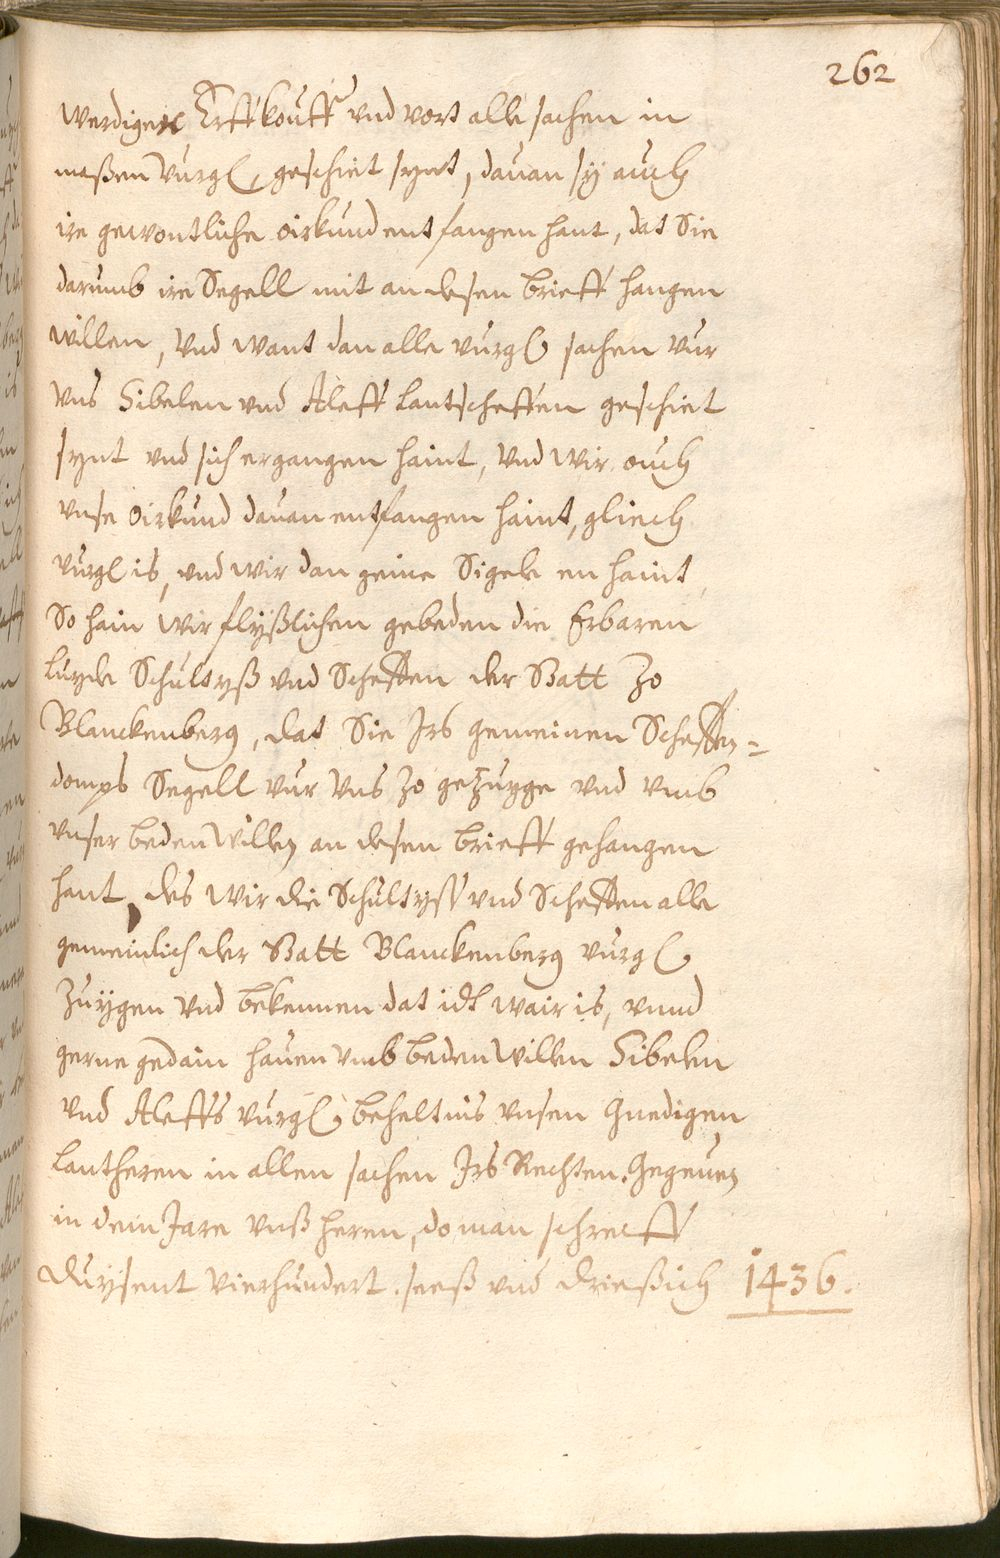 262
werdigen Erffkouff vnd vort alle sachen in
maßen vurgl. geschiet synt, dauan sy auch
ire gewontliche oirkund entfangen hant, dat Sie
darumb ire Segell mit an desen brieff hangen
willen, vnd want dan alle vurgl. sachen vur
vns Sibelen vnd Aleff Lantscheffen geschiet
synt vnd sich ergangen haint, vnd wir ouch
vnse oirkund dauan entfangen haint, gliech
vurgl. is, vnd wir dan geine Sigele en haint
So hain wir flyßlichen gebeden die Erbaren
luyde Schultyß vnd Scheffen der Statt Zo
Blanckenberg, dat Sie Irs gemeinen Scheffen=
domps Segell vur vns zo gezuyge vnd vmb
vnser beden willen an desen brieff gehangen
hant, des wir die Schultyss vnd Scheffen alle
gemeinlich der Statt Blanckenberg vurgl.
Zuÿgen vnd bekennen dat idt wair is, vnnd
gerne gedain hauen vmb beden willen Sibelen
vnd Aleffs vurgl. beheltnis vnsen Gnedigen
Lantheren in allen sachen Irs Rechten. Gegeuen
in dem Jare vnß heren, do man schreiff
Duysent vierhundert. seeß vnd drießich 1436.